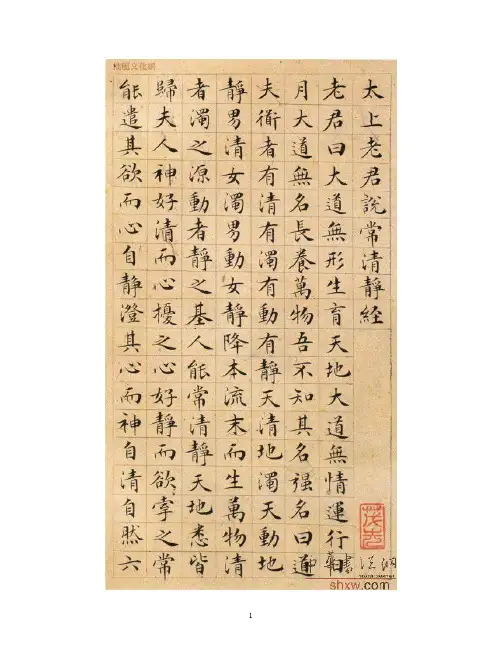 太上老君說常清靜経
老君曰大道無形生育天地大道無情運行日
月大道無名長養萬物吾不知其名强名曰道
夫衜者有清有濁有動有靜天清地濁天動地
靜男清女濁男動女靜降本流末而生萬物清
者濁之源動者靜之基人能常清靜天地悉皆
歸夫人神好清而心擾之心好靜而欲牽之常
能遣其欲而心自靜澄其心而神自清自然六
shxw.com
1